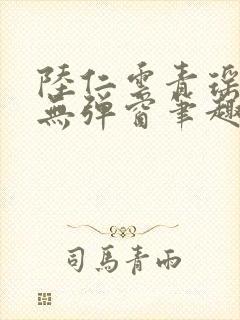 陸仁雲青瑶
無彈窗筆趣
司馬青雨